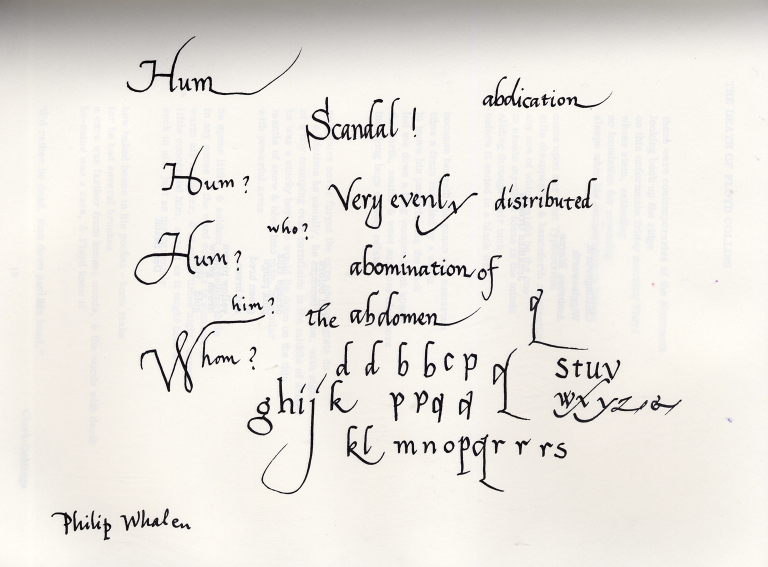 Hum
abdication
Scandal !
Hum ?
Very evenly distributed
who ?
Hum ?
abomination of
him ?
the abdomen
q
Whom ?
d d b b c p q
s t u v
g h i j k p p q q
w x y z &
k l m n o p q r r r s
Philip Whalen